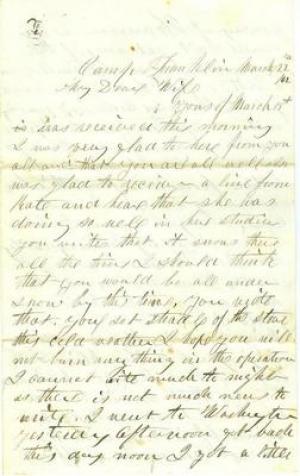 Camp Franklin March 22
/62
My Dear Wife
Yours of March
is was received this morning
I was very glad to here from you
all and that you are all well I
was glad to receive a line from
Kate and hear that she has
doing so well in her studies
You write that it snows there
all the time I should think
that you would be all under
snow by this time, you wrote
that you set stradle of the stove
this cold weather I hope you will
not burn anything in the operation
I cannot write much to night
as there is not much news to
write. I went to Washington
yesterday afternoon got back
this day noon I got a little